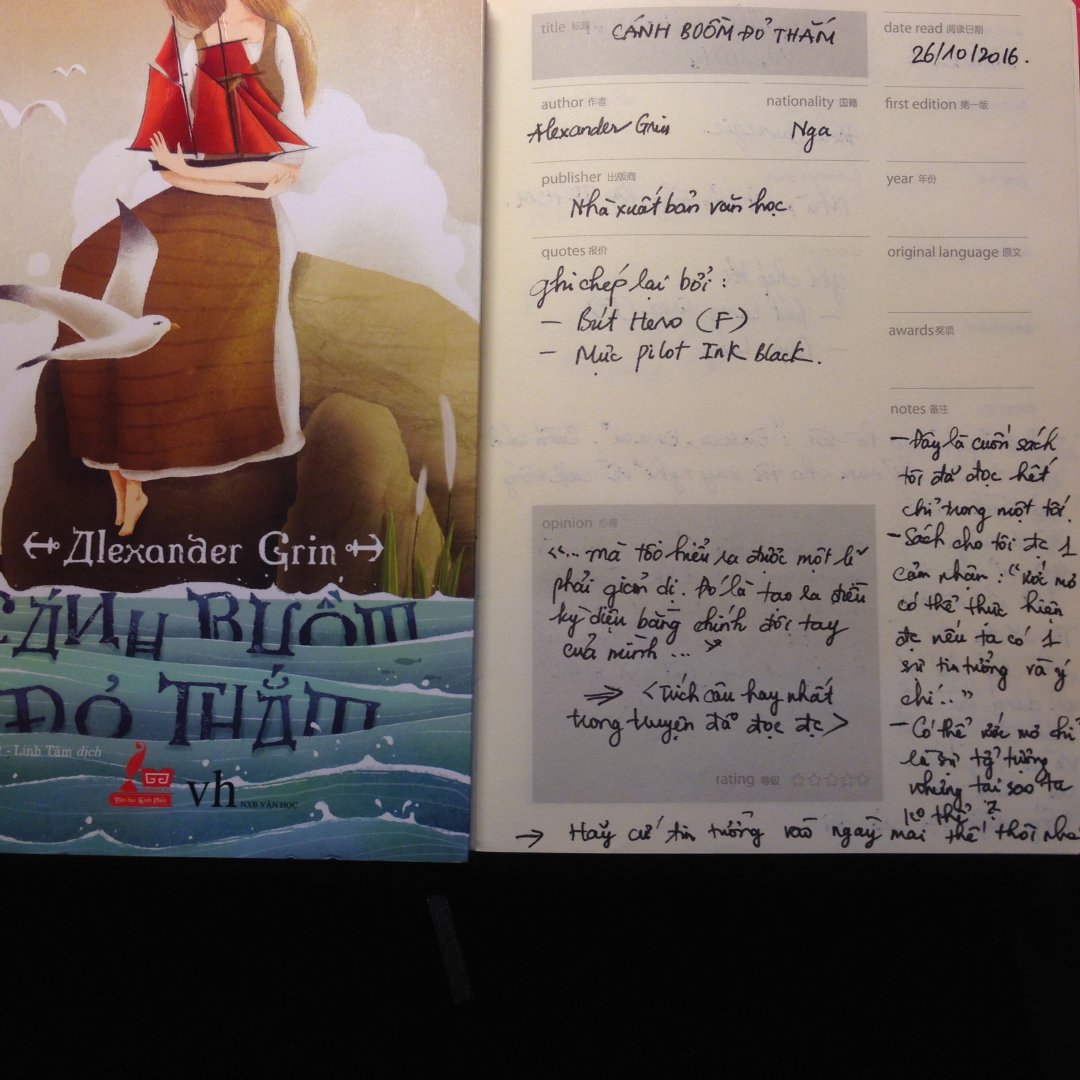 Alexander Grin
CÁNH BUỒM
ĐỎ THẮM
- Linh Tâm dịch
Văn học Kinh Điển
vh
NXB VĂN HỌC
title 标题
CÁNH BUỒM ĐỎ THẮM
date read 阅读日期
26/10/2016.
author 作者
Alexander Grin
nationality 国籍
Nga
first edition 第一版
publisher 出版商
Nhà xuất bản văn học
year 年份
quotes 报价
ghi chép lại bởi :
- Bút Hero (F)
- Mực Pilot Ink Black.
original language 原文
awards 奖项
notes 备注
- Đây là cuốn sách
tôi đã đọc hết
chỉ trong một tối.
- Sách cho tôi đc 1
cảm nhận : "Ước mơ
có thể thực hiện
đc nếu ta có 1
sự tin tưởng và ý
chí..."
- Có thể ước mơ chỉ
là sự tưởng
nhưng tại sao ta
ko thử ?
opinion 心得
"... mà tôi hiểu ra được một lí
phải giản dị. Đó là tạo ra điều
kỳ diệu bằng chính đôi tay
của mình ... "
⇒ < Trích câu hay nhất
trong truyện đã đọc đc >
rating 等级 ☆☆☆☆☆
→ Hãy cứ tin tưởng vào ngày mai thế thôi nha